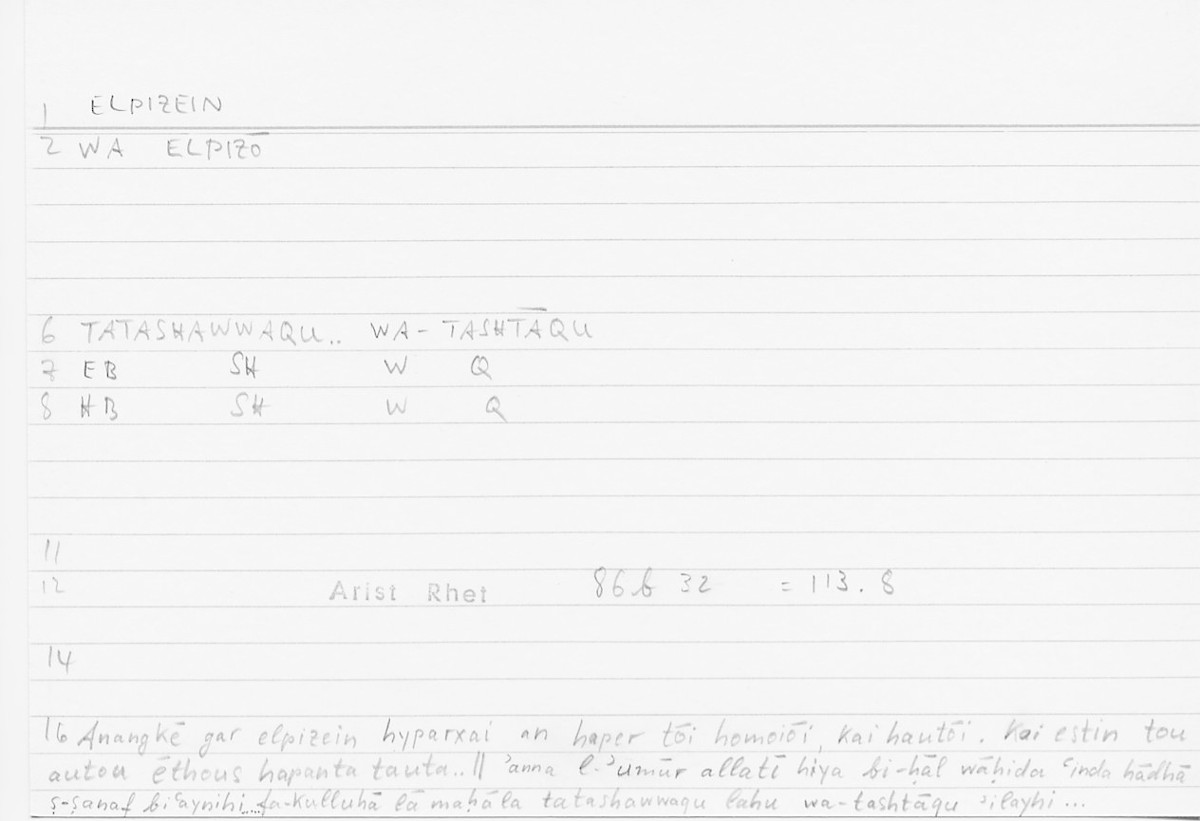 1 ELPIZEIN
2 WA ELPIZŌ
6 TATASHAWWAQU.. WA- TASHTĀQU
7 EB SH W Q
8 HB SH W Q
11
12 Arist Rhet 86b 32 = 113.8
14
16 Anangkē gar elpizein hyparxai an haper tōi homoiōi, kai hautōi. Kai estin tou
autou ēthous hapanta tauta.. || ʾanna l-ʾumūr allatī hiya bi-ḥāl wāḥida ʿinda hādhā
ṣ-ṣanaf biʿaynihi fa-kulluhā lā maḥāla tatashawwaqu lahu wa-tashtāqu ʾilayhi ...